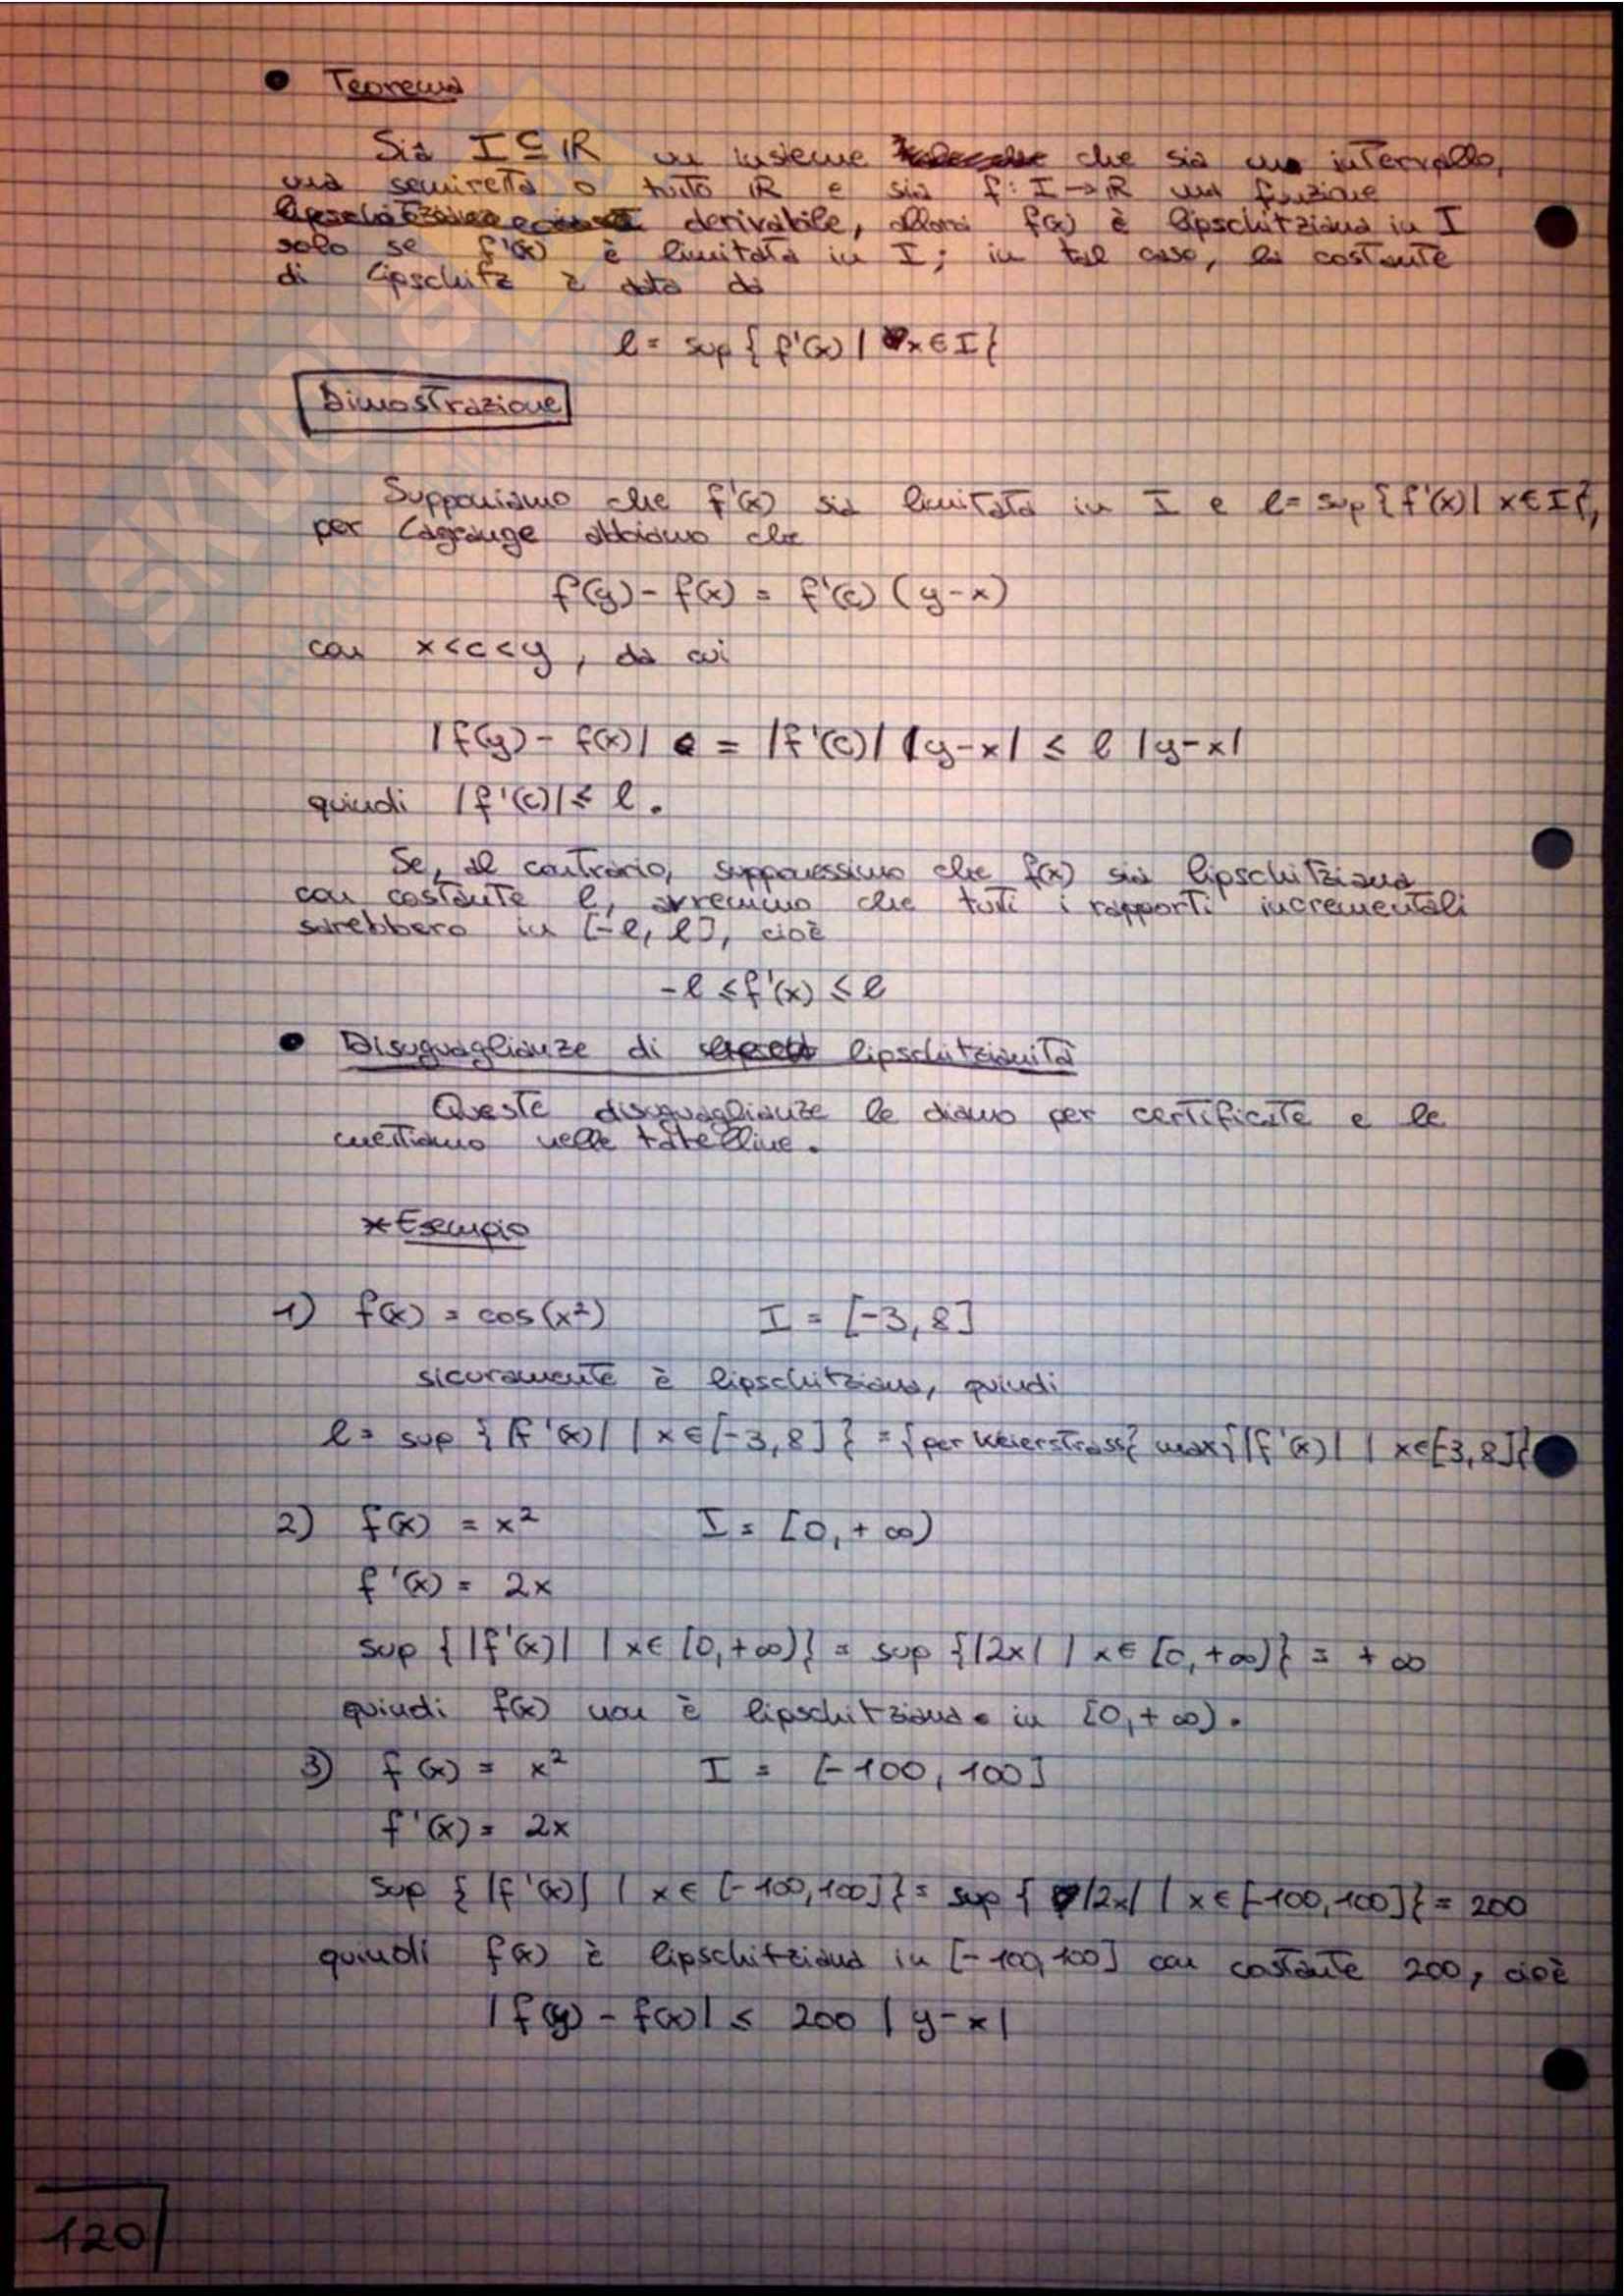 • Teorema
Sia I ⊆ ℝ un insieme che sia un intervallo,
una semiretta o tutto ℝ e sia f: I → ℝ una funzione
derivabile, allora f(x) è lipschitziana in I
solo se f'(x) è limitata in I; in tal caso, la costante
di Lipschitz è data da
l = sup { f'(x) | x ∈ I }
Dimostrazione
Supponiamo che f'(x) sia limitata in I e l = sup { f'(x) | x ∈ I },
per Lagrange abbiamo che
f(y) - f(x) = f'(c) (y-x)
con x < c < y, da cui
|f(y) - f(x)| = |f'(c)| |y-x| ≤ l |y-x|
quindi |f'(c)| ≤ l.
Se, al contrario, supponessimo che f(x) sia lipschitziana
con costante l, avremmo che tutti i rapporti incrementali
sarebbero in [-l, l], cioè
-l ≤ f'(x) ≤ l
• Disuguaglianze di lipschitzianità
Queste disuguaglianze le diamo per certificate e le
mettiamo nelle tabelline.
* Esempio
1) f(x) = cos(x²) I = [-3, 8]
sicuramente è lipschitziana, quindi
l = sup { |f'(x)| | x ∈ [-3, 8] } = {per Weierstrass} max { |f'(x)| | x ∈ [-3, 8] }
2) f(x) = x² I = [0, +∞)
f'(x) = 2x
sup { |f'(x)| | x ∈ [0, +∞) } = sup { |2x| | x ∈ [0, +∞) } = +∞
quindi f(x) non è lipschitziana in [0, +∞).
3) f(x) = x² I = [-100, 100]
f'(x) = 2x
sup { |f'(x)| | x ∈ [-100, 100] } = sup { |2x| | x ∈ [-100, 100] } = 200
quindi f(x) è lipschitziana in [-100, 100] con costante 200, cioè
|f(y) - f(x)| ≤ 200 |y-x|
120